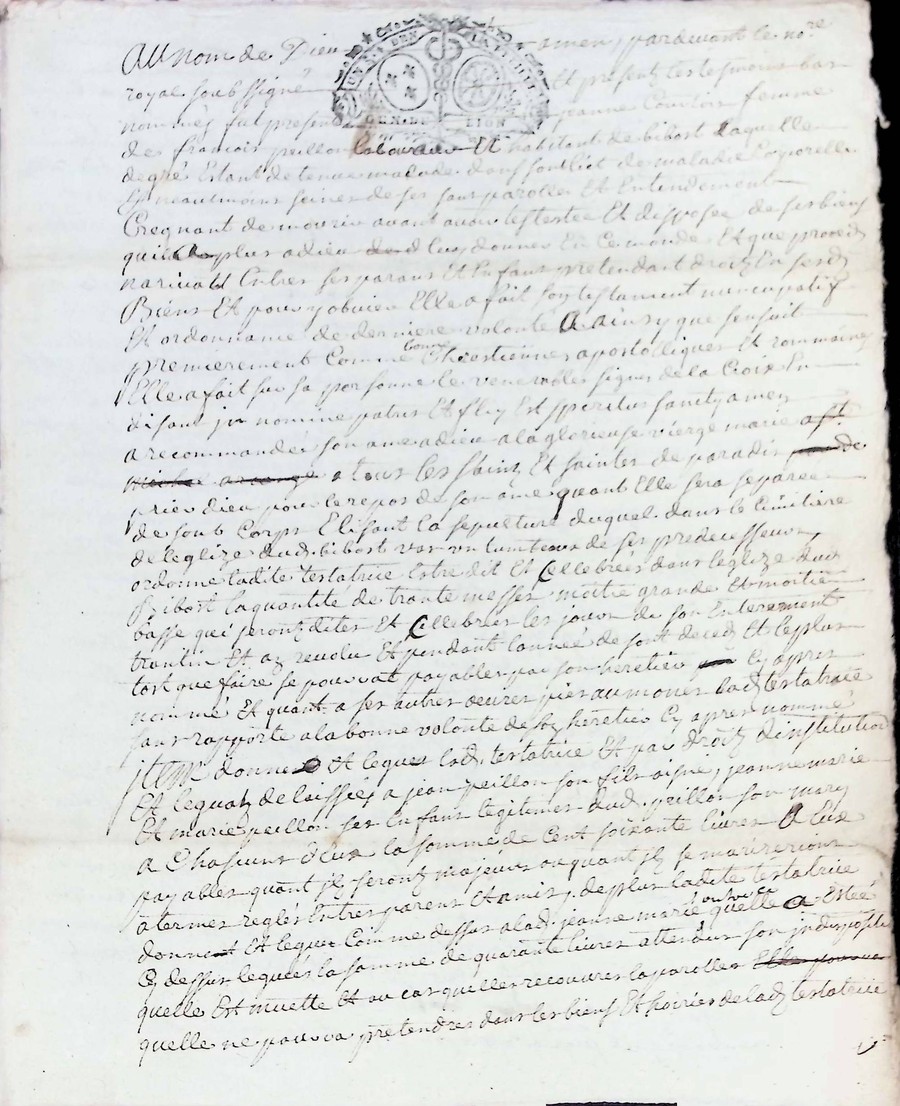 Au nom de Dieu amen, pardevant le no.re
royal soubsigné Et presentz les tesmoins bas
nommés fut presente jeanne Courtois femme
de francois peillon laboureur Et habitant de bibost laquelle
de gré Estant detenue malade dans son lict de maladie Corporelle
Et neautmoins seinne de ses sans parolle Et Entendement
Cregnant de mourir avant avoir testée Et disposée de ses biens
quil a plus a dieu de luy donner En ce monde Et que proces
narivat Entres ses parans Et Enfans pretendant droitz En sesdz
Biens Et pour y obvier Elle a fait son testament nuncupatif
Et ordonnance de derniere volonté A ainsy que sensuit
premierement Comme bonne Chrestiennes apostolliques Et rommaines
Elle a fait sur sa personne le venerables signe de la Croix En
disant jn nomine patris Et fily Est spiritus sancty amen
a recommandé son ame a dieu a la glorieuse vierge marie a st.
michel arcange a tous les saints Et saintes de paradis de
prier dieu pour le repos de son ame quant Elle sera separée
de sont Corps Elisant la sepulture duquel dans le Cimitiere
de leglize dud. bibost vas ou tumbeau de ses predecesseurs
ordonne ladite testatrice Estre dit Et Cellebrés dans leglize dud.
Bibost la quantité de trante messes moitié grande Et moitié
basse qui seront dites Et Cellebrées les jours de son Enterement
trantin Et an revolu Et pendant lannée de sont decedz Et le plus
tost que faire se pourrat payables par son heretier Cy apres
nommé Et quant a ses autres œuvres pies aumones lad. testatrice
sans rapporte a la bonne volonté de son heretier Cy apres nommé
jtem donne Et legue lad. testatrice Et par droit dinstitution
Et legatz delaissée a jean peillon son fils aisné, jeanne marie
Et marie peillon ses Enfans legitimes dud. peillon son mary
a Chascuns d'Eux la somme de Cent soixante livres A Eux
payables quant jlz seront majeurs ou quant jlz se marieront
a termes reglés Entres parens Et amis, de plus ladite testatrice
donne Et legue Comme dessus a lad. jeanne marie outre ce quelle a Estée
Cy dessus leguée la somme de quarante livres attendus son jndisposition
quelle Est muette Et au cas quelle recouvres la parolles Elle pourra
quelle ne pourra pretendres dans les biens Et hoiries de lad. testatrice